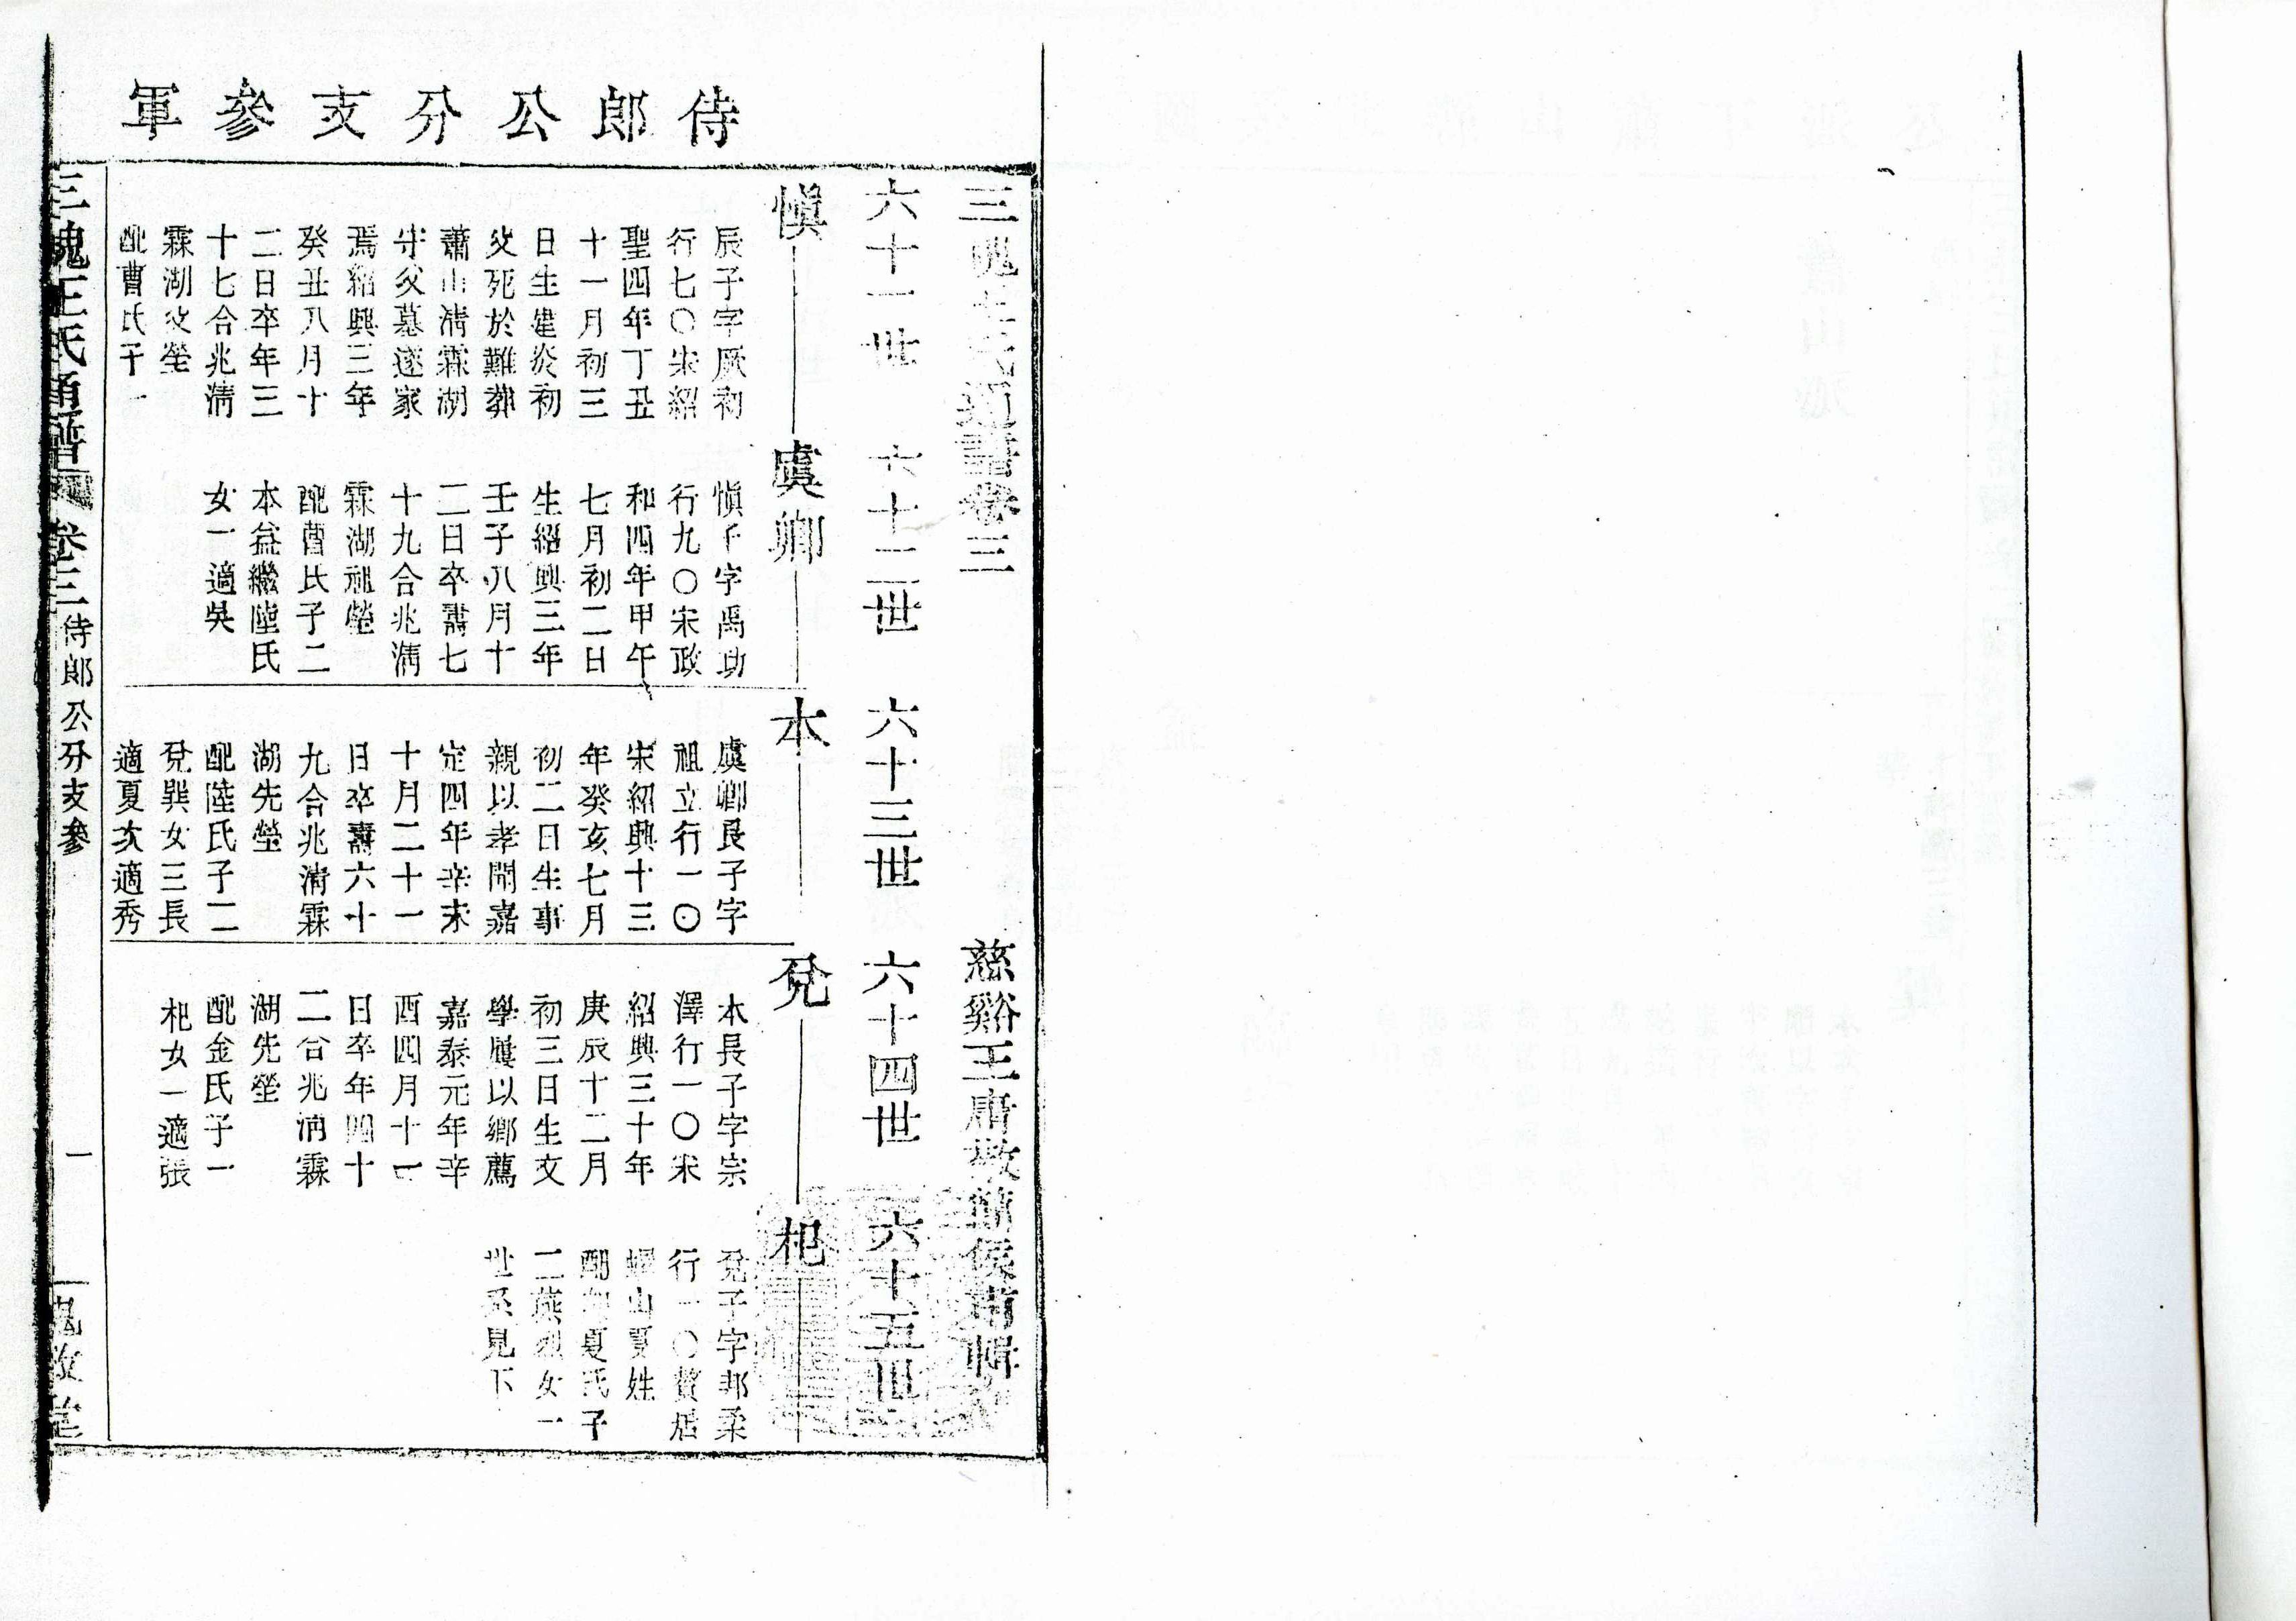 侍郎公分支參軍
三槐王氏通譜卷三
慈谿王庸敬簡侯甫輯
六十一世
六十二世
六十三世
六十四世
六十五世
愼
虞卿
本
兌
杞
辰子字厥初
行七〇宋紹
聖四年丁丑
十一月初三
日生建炎初
父死於難葬
蕭山淸霖湖
守父墓遂家
焉紹興三年
癸丑八月十
二日卒年三
十七合兆淸
霖湖父塋
配曹氏子一
愼子字禹功
行九〇宋政
和四年甲午
七月初二日
生紹興三年
壬子八月十
二日卒壽七
十九合兆淸
霖湖祖塋
配曹氏子二
本益繼陸氏
女一適吳
虞卿長子字
祖立行一〇
宋紹興十三
年癸亥七月
初二日生事
親以孝聞嘉
定四年辛未
十月二十一
日卒壽六十
九合兆淸霖
湖先塋
配陸氏子二
兌巽女三長
適夏次適秀
本長子字宗
澤行一〇宋
紹興三十年
庚辰十二月
初三日生文
學屢以鄉薦
嘉泰元年辛
酉四月十一
日卒年四十
二合兆淸霖
湖先塋
配金氏子一
杞女一適張
兌子字邦柔
行一〇贅居
山夏姓
配夏氏子
二燕烈女一
世系見下
三槐王氏通譜 卷三 侍郎公分支參 一 槐政堂